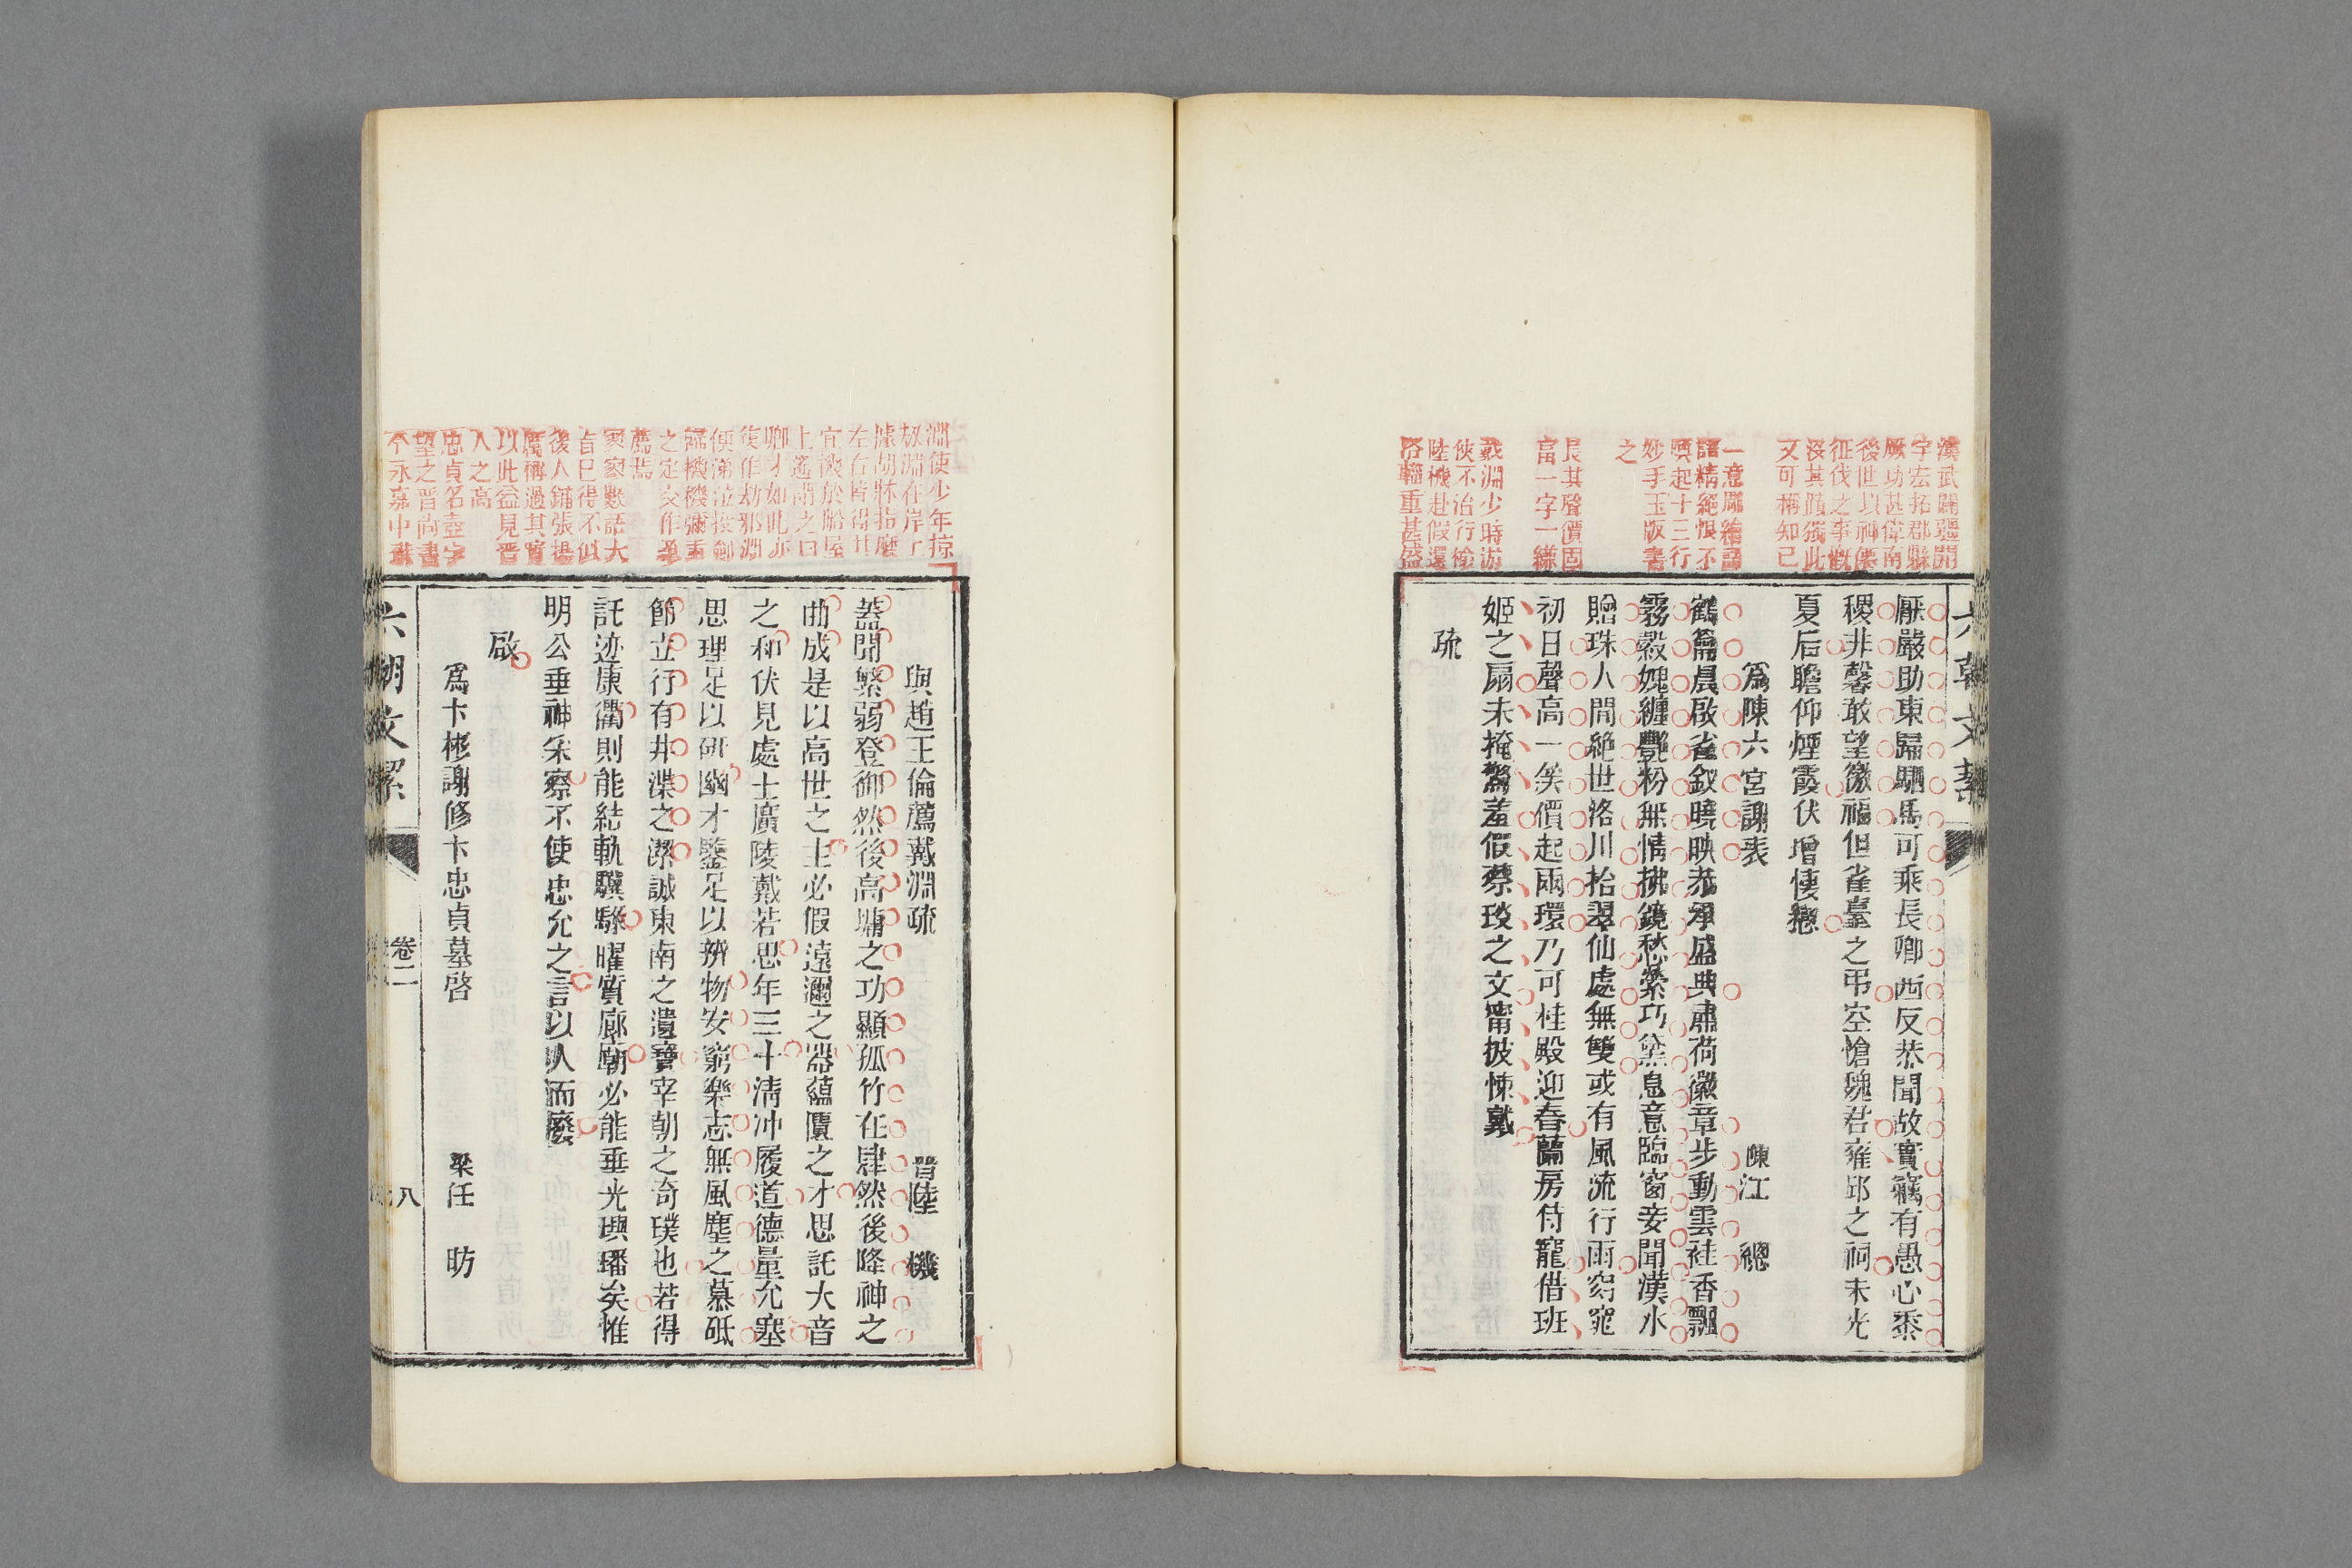 漢武闢疆開
宇宏拓郡縣
厥功甚偉南
後世以神僊
征伐之事概
沒其價獨此
文可稱知己
一意雕繪
諧精絕恨不
喚起十三行
妙手玉版書
之
長其聲價固
當一字一縑
戴淵少時游
俠不治行檢
陸機赴假還
洛輜重甚盛
六朝文絜
厭嚴助東歸駟馬可乘長卿西反恭聞故實竊有愚心黍
稷非馨敢望徼福但雀臺之弔空愴魏君雍邱之祠未光
夏后瞻仰煙霞伏增悽戀
為陳六宮謝表 陳江總
鶴籥晨啟雀釵曉映恭承盛典肅荷徽章步動雲袿香飄
霧縠媿纏豔粉無情拂鏡愁縈巧黛息意臨窗妾聞漢水
贈珠人閒絕世洛川拾翠仙處無雙或有風流行雨窈窕
初日聲高一笑價起兩環乃可桂殿迎春蘭房侍寵借班
姬之扇未掩驚羞假蔡琰之文甯披悚戴
疏
淵使少年掠
劫淵在岸上
據胡牀指麾
左右皆得其
宜機於船屋
上遙謂之曰
卿才如此亦
復作劫邪淵
便涕泣投劍
歸機機彌重
之定交作筆
薦焉
寥寥數語大
旨已得不似
後人鋪張揚
厲稱過其實
以此益見晉
人之高
忠貞名壺字
望之晉尚書
令永嘉中蘇
與趙王倫薦戴淵疏 晉陸機
蓋聞繁弱登御然後高墉之功顯孤竹在肆然後降神之
曲成是以高世之主必假遠邇之器蘊匵之才思託大音
之和伏見處士廣陵戴若思年三十清沖履道德量允塞
思理足以研幽才鑒足以辨物安窮樂志無風塵之慕砥
節立行有井渫之潔誠東南之遺寶宰朝之奇璞也若得
託迹康衢則能結軌驥騄曜質廊廟必能垂光璵璠矣惟
明公垂神采察不使忠允之言以人而廢
啟
為卞彬謝修卞忠貞墓啓 梁任昉
六朝文絜
卷二
八